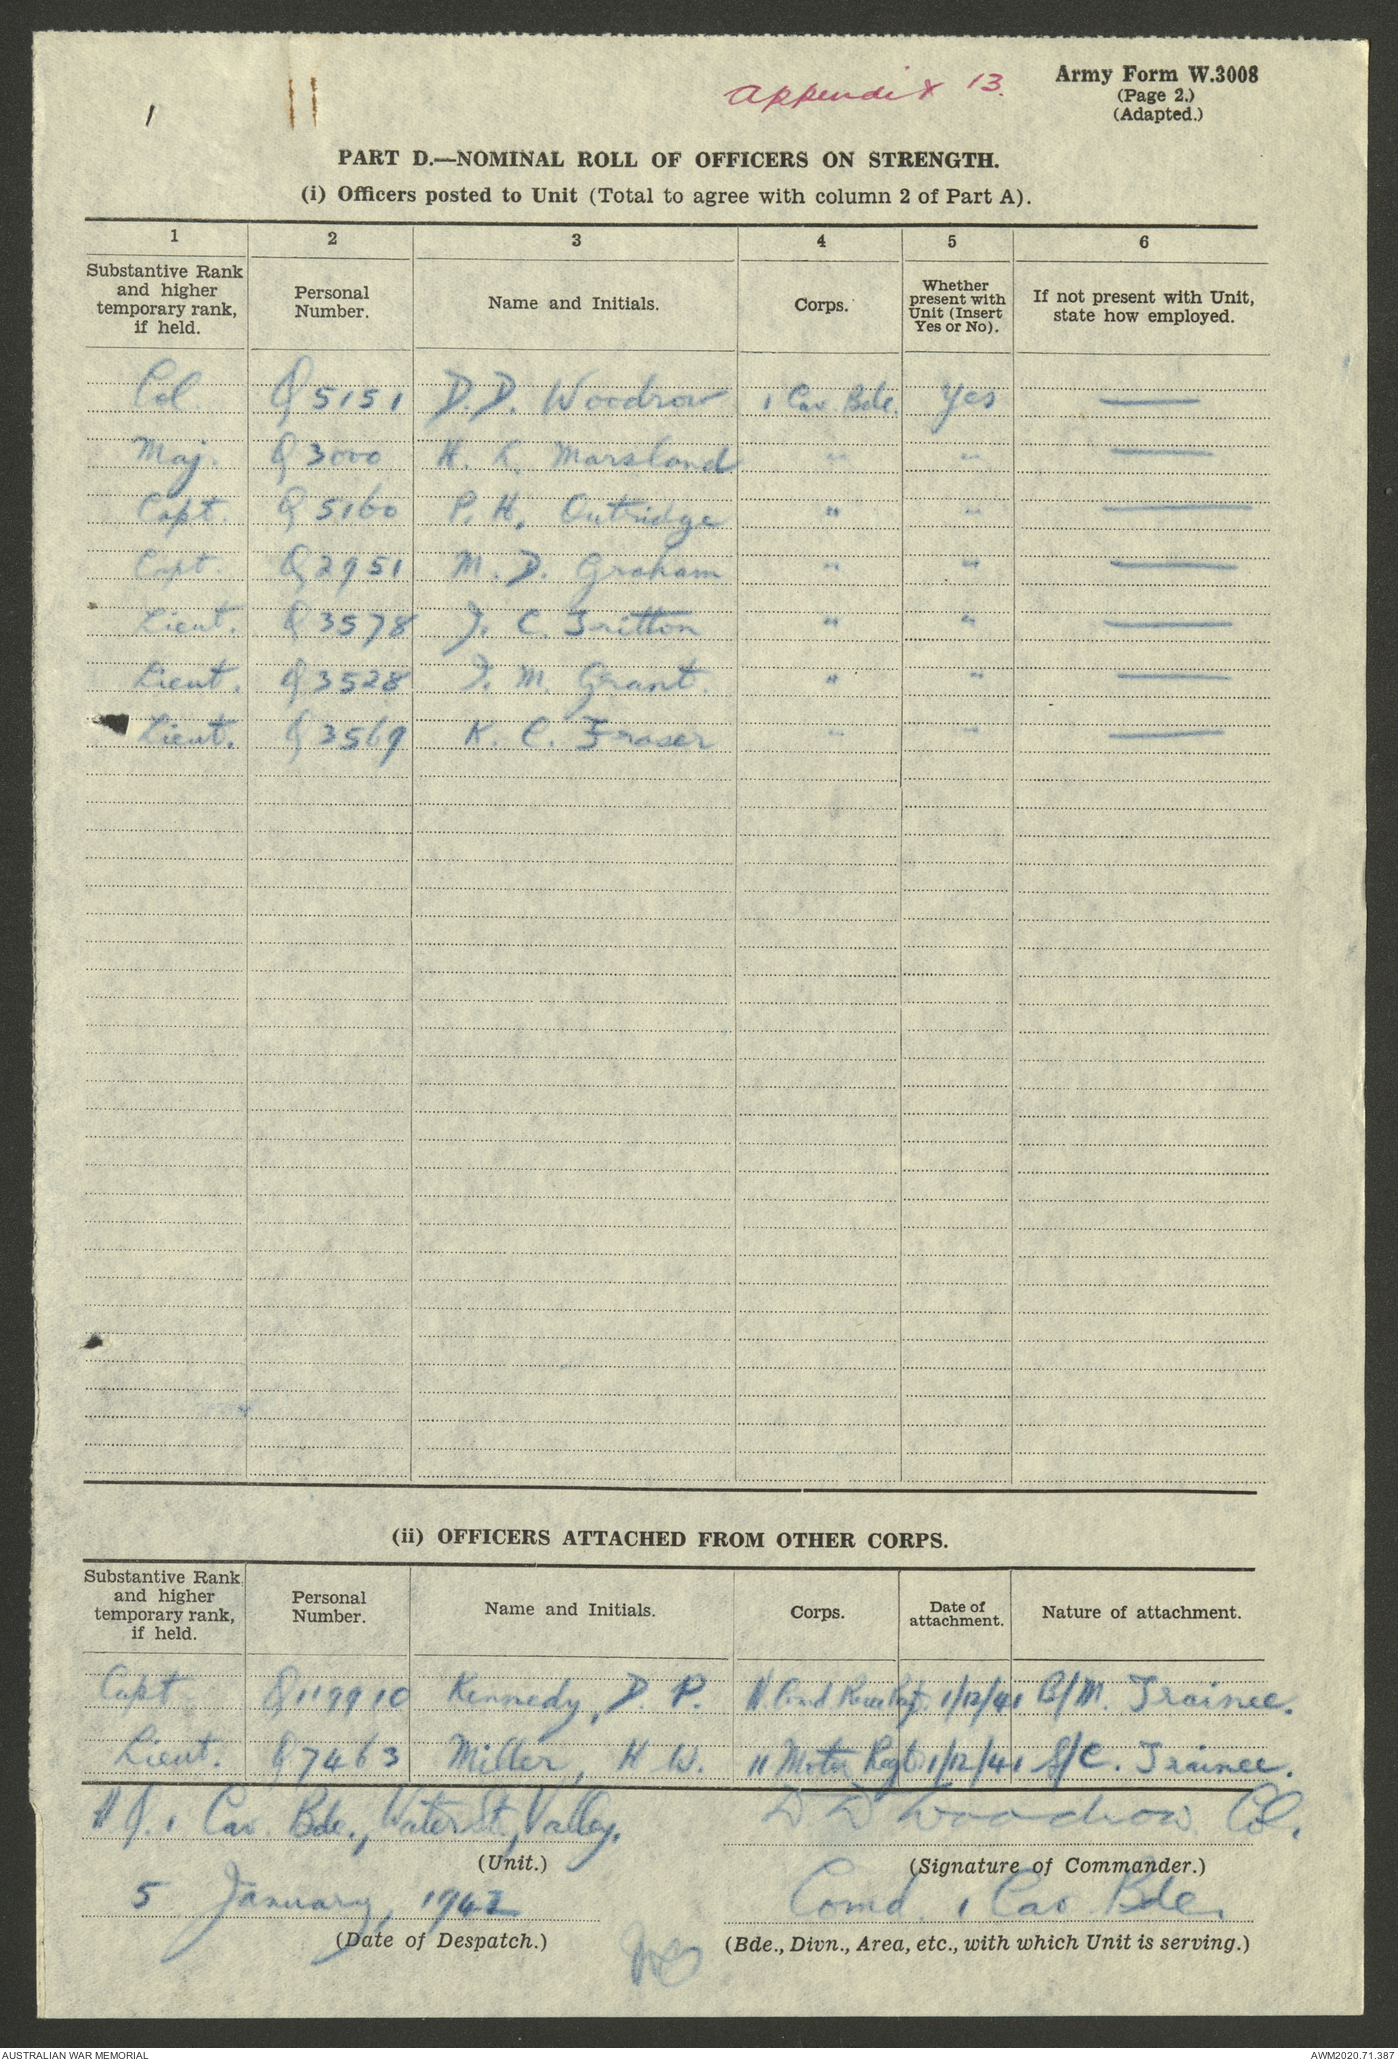 1
Appendix 13.
Army Form W.3008
(Page 2.)
(Adapted.)
PART D.—NOMINAL ROLL OF OFFICERS ON STRENGTH.
(i) Officers posted to Unit (Total to agree with column 2 of Part A).
1 2 3 4 5 6
Substantive Rank and higher temporary rank, if held. Personal Number. Name and Initials. Corps. Whether present with Unit (Insert Yes or No). If not present with Unit, state how employed.
Col. Q5151 D.D. Woodrow 1 Cav. Bde. Yes —
Maj. Q3000 H. L. Marsland " " —
Capt. Q5160 P. H. Outridge " " —
Capt. Q2951 M. D. Graham " " —
Lieut. Q3578 J. C. Tritton " " —
Lieut. Q3528 J. M. Grant. " " —
Lieut. Q3569 K. C. Fraser " " —
(ii) OFFICERS ATTACHED FROM OTHER CORPS.
Substantive Rank and higher temporary rank, if held. Personal Number. Name and Initials. Corps. Date of attachment. Nature of attachment.
Capt. Q119910 Kennedy, D. P. 1/12/41 B/M. Trainee.
Lieut. Q7463 Miller, H W. 11 Motor Regt. 1/12/41 S/C. Trainee.
H.Q. 1 Cav. Bde., Water St, Valley. D D Woodrow Col.
(Unit.) (Signature of Commander.)
5 January, 1942 Comd. 1 Cav Bde.
(Date of Despatch.) (Bde., Divn., Area, etc., with which Unit is serving.)
AUSTRALIAN WAR MEMORIAL AWM2020.71.387